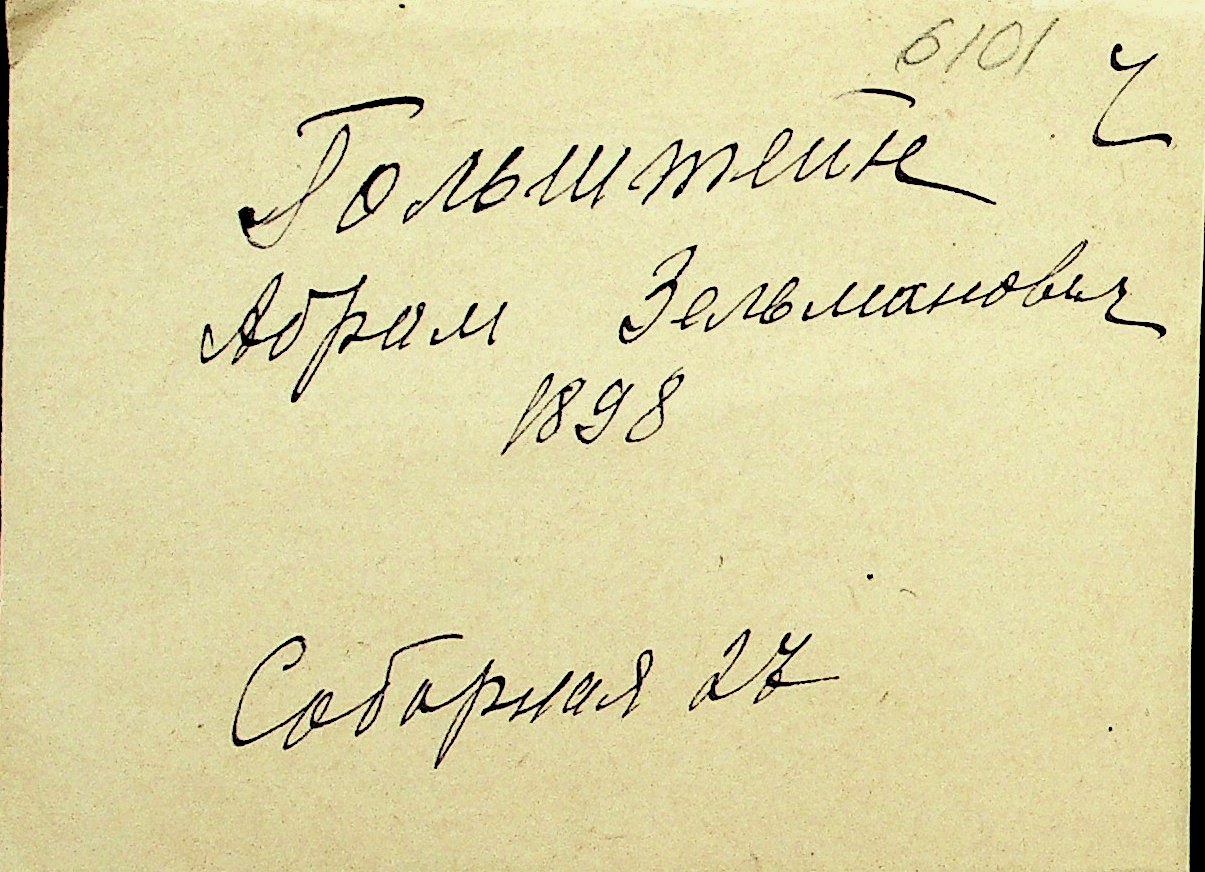 6101 ч
Гольштейн
Абрам Зельманович
1898
Соборная 27